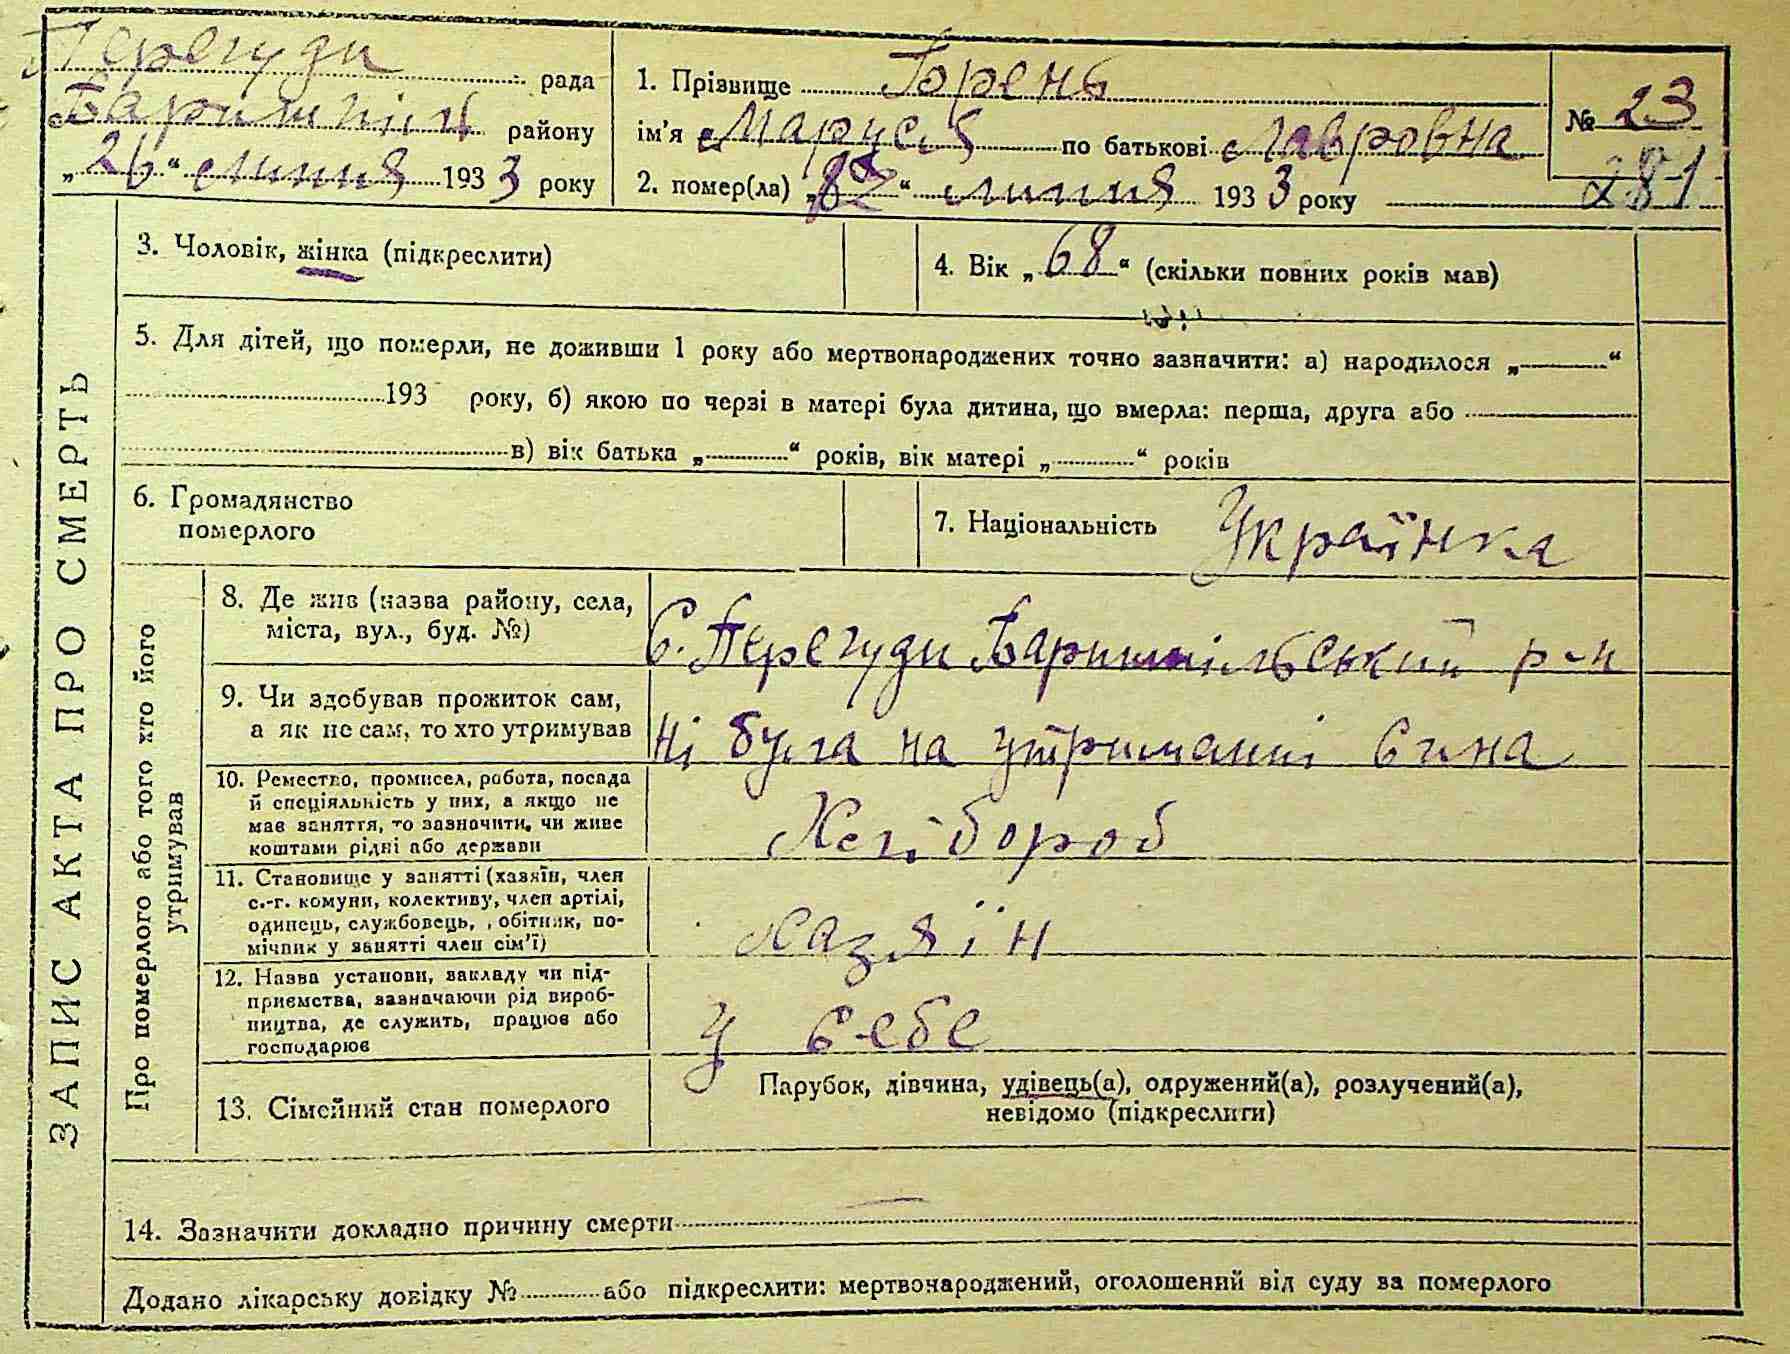 Перегуди рада
Баришпіл району
„26“ липня 1933 року
1. Прізвище Борень
ім'я Маруся по батькові Лавровна
2. помер(ла) липня 1933 року
№ 23
281
ЗАПИС АКТА ПРО СМЕРТЬ
3. Чоловік, жінка (підкреслити)
4. Вік „68“ (скільки повних років мав)
5. Для дітей, що померли, не доживши 1 року або мертвонароджених точно зазначити: а) народилося „ “
193 року, б) якою по черзі в матері була дитина, що вмерла: перша, друга або
в) вік батька „ “ років, вік матері „ “ років
6. Громадянство
померлого
7. Національність Українка
Про померлого або того хто його
утримував
8. Де жив (назва району, села,
міста, вул., буд. №)
С. Перегуди Баришпільський р-н
9. Чи здобував прожиток сам,
а як не сам, то хто утримував
Ні була на утриманні сина
10. Ремество, промисел, робота, посада
й спеціяльність у них, а якщо не
має заняття, то зазначити, чи живе
коштами рідні або держави
Хлібороб
11. Становище у занятті (хазяїн, член
с.-г. комуни, колективу, член артілі,
одинець, службовець, , обітник, по-
мічник у занятті член сім'ї)
хазяїн
12. Назва установи, закладу чи під-
приємства, зазначаючи рід вироб-
ництва, де служить, працює або
господарює
у себе
13. Сімейний стан померлого
Парубок, дівчина, удівець(а), одружений(а), розлучений(а),
невідомо (підкреслити)
14. Зазначити докладно причину смерти
Додано лікарську довідку № або підкреслити: мертвонароджений, оголошений від суду за померлого